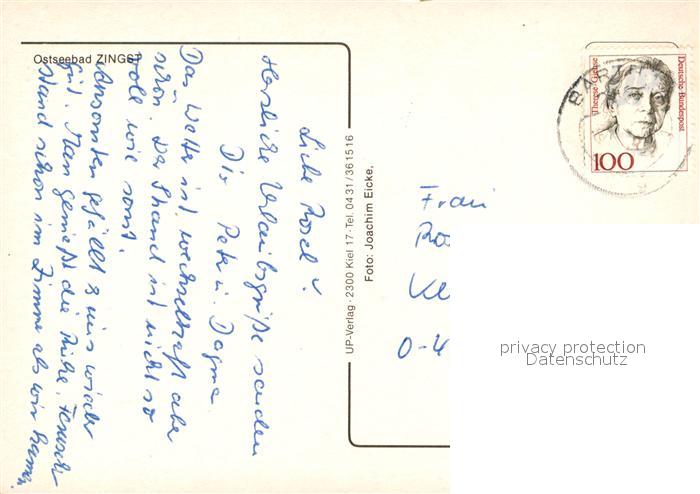 Ostseebad ZINGST
Liebe Rosel!
Herzliche Urlaubsgrüße senden
Dir Peter u. Dagmar
Das Wetter ist wechselhaft aber
schön. Der Strand ist nicht so
voll wie sonst.
Ansonsten gefällt es uns wieder
gut. Man genießt die Ruhe. Fernseh
stand schon im Zimmer als wir kamen
UP-Verlag · 2300 Kiel 17 · Tel. 0431/361516
Foto: Joachim Eicke,
Deutsche Bundespost
Therese Giehse
100
BARTH
Frau
Ro
Ke
O-4
privacy protection
Datenschutz